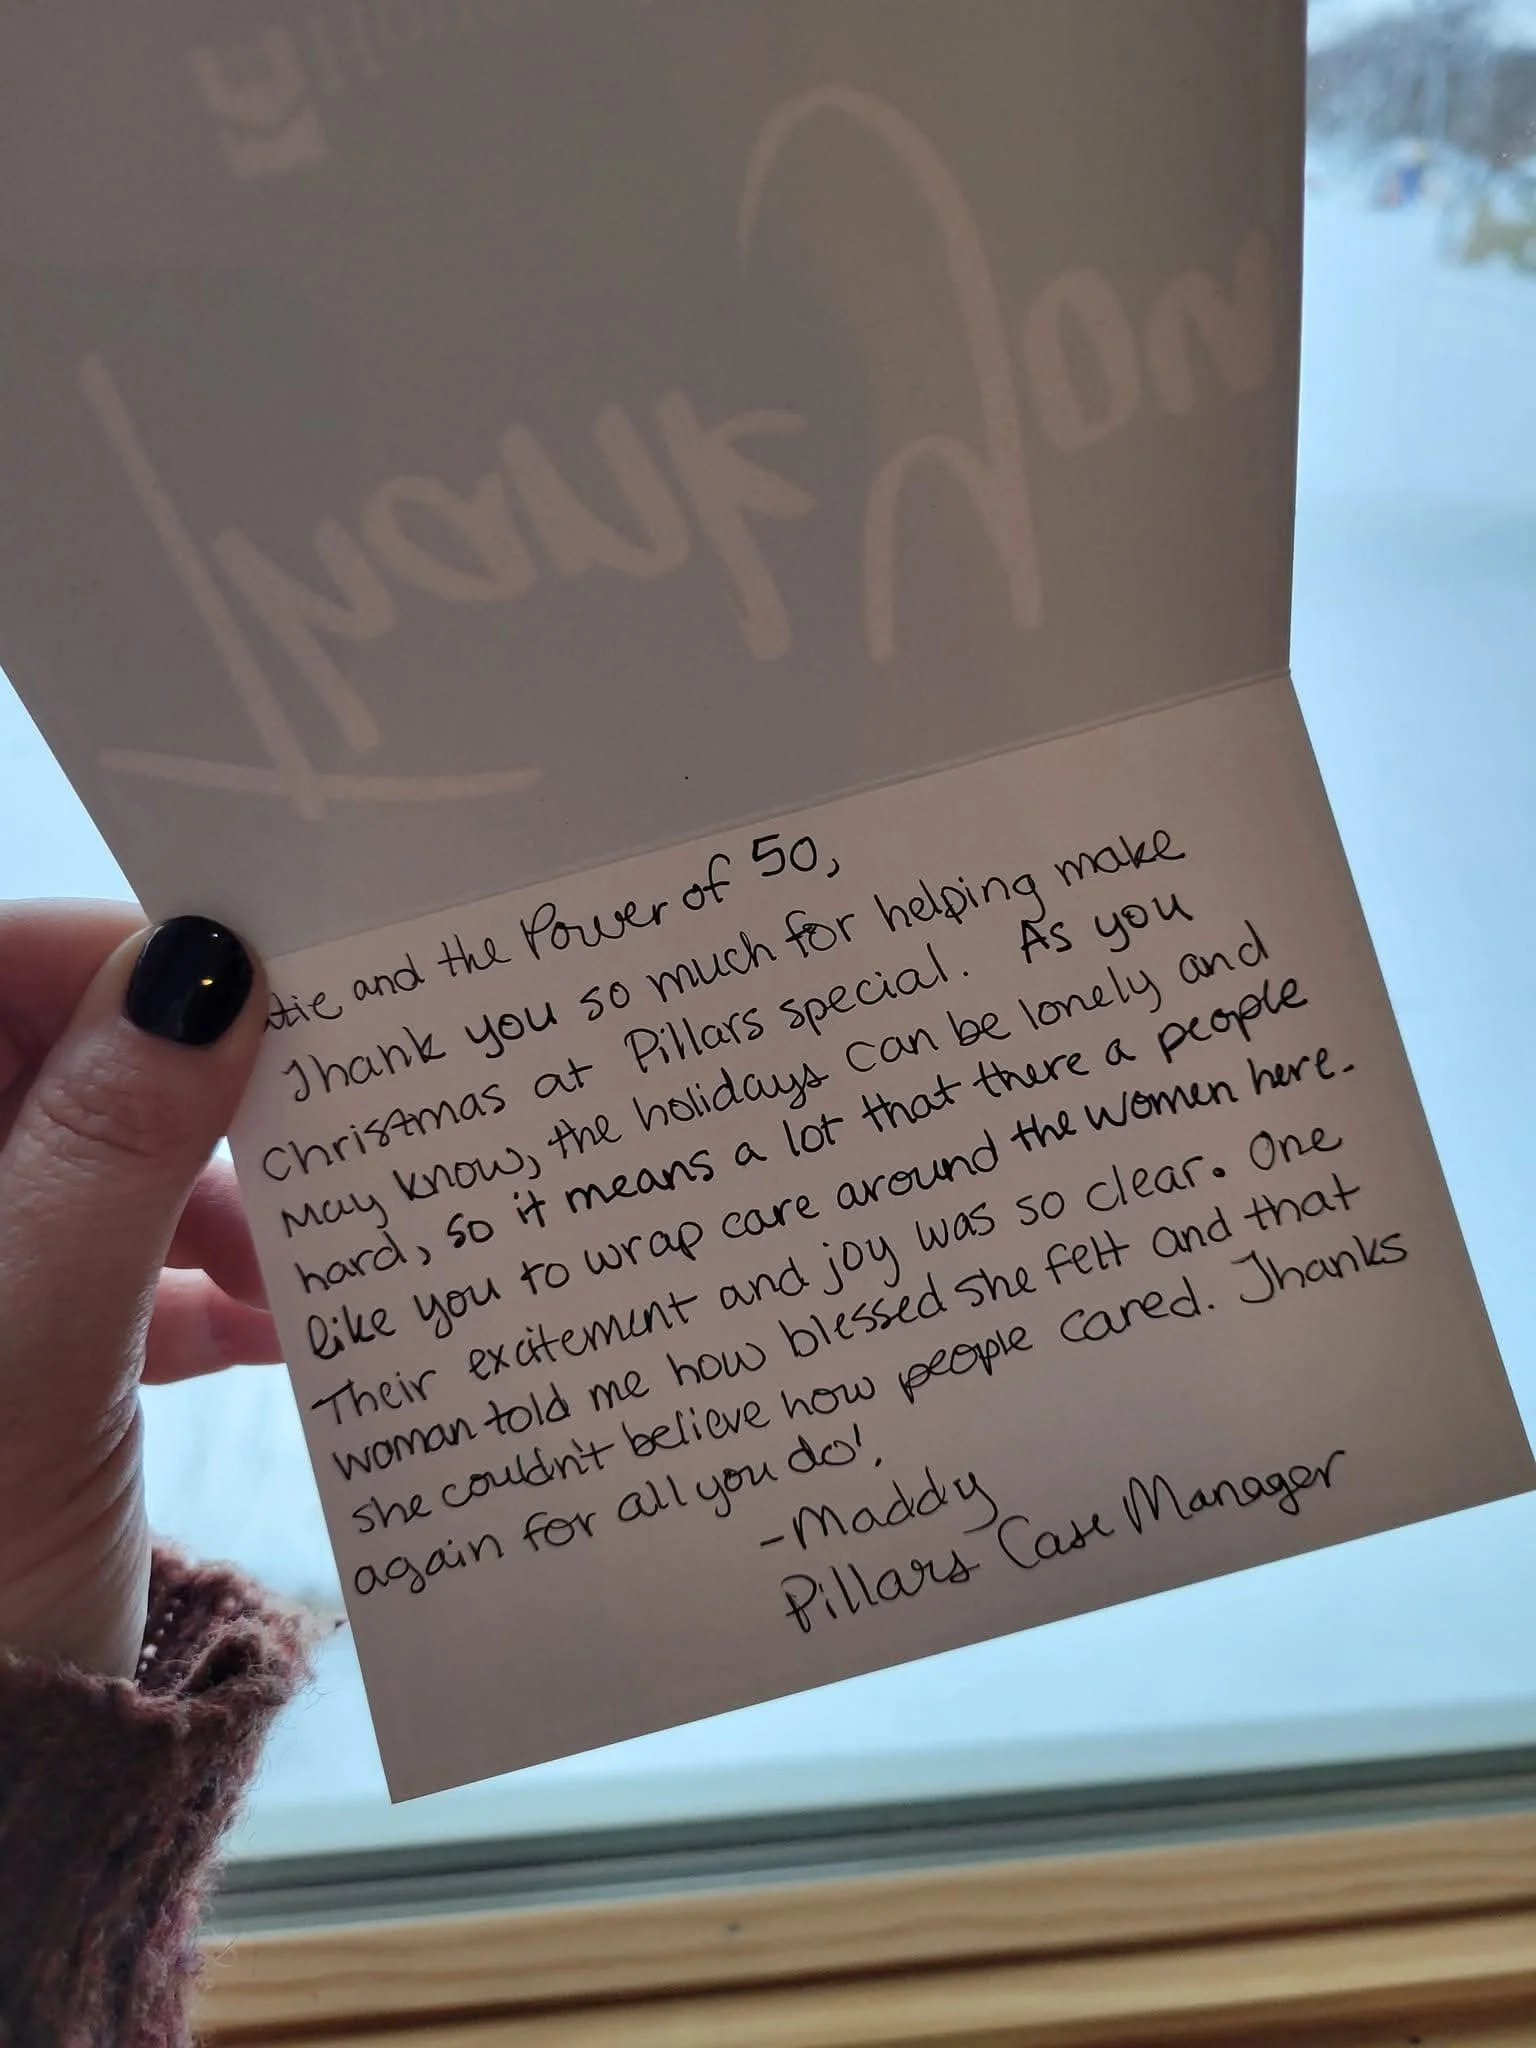 Thank you
tie and the Power of 50,
Thank you so much for helping make
Christmas at Pillars special. As you
may know, the holidays can be lonely and
hard, so it means a lot that there a people
like you to wrap care around the women here.
Their excitement and joy was so clear. One
woman told me how blessed she felt and that
she couldn't believe how people cared. Thanks
again for all you do!
-Maddy
Pillars Case Manager